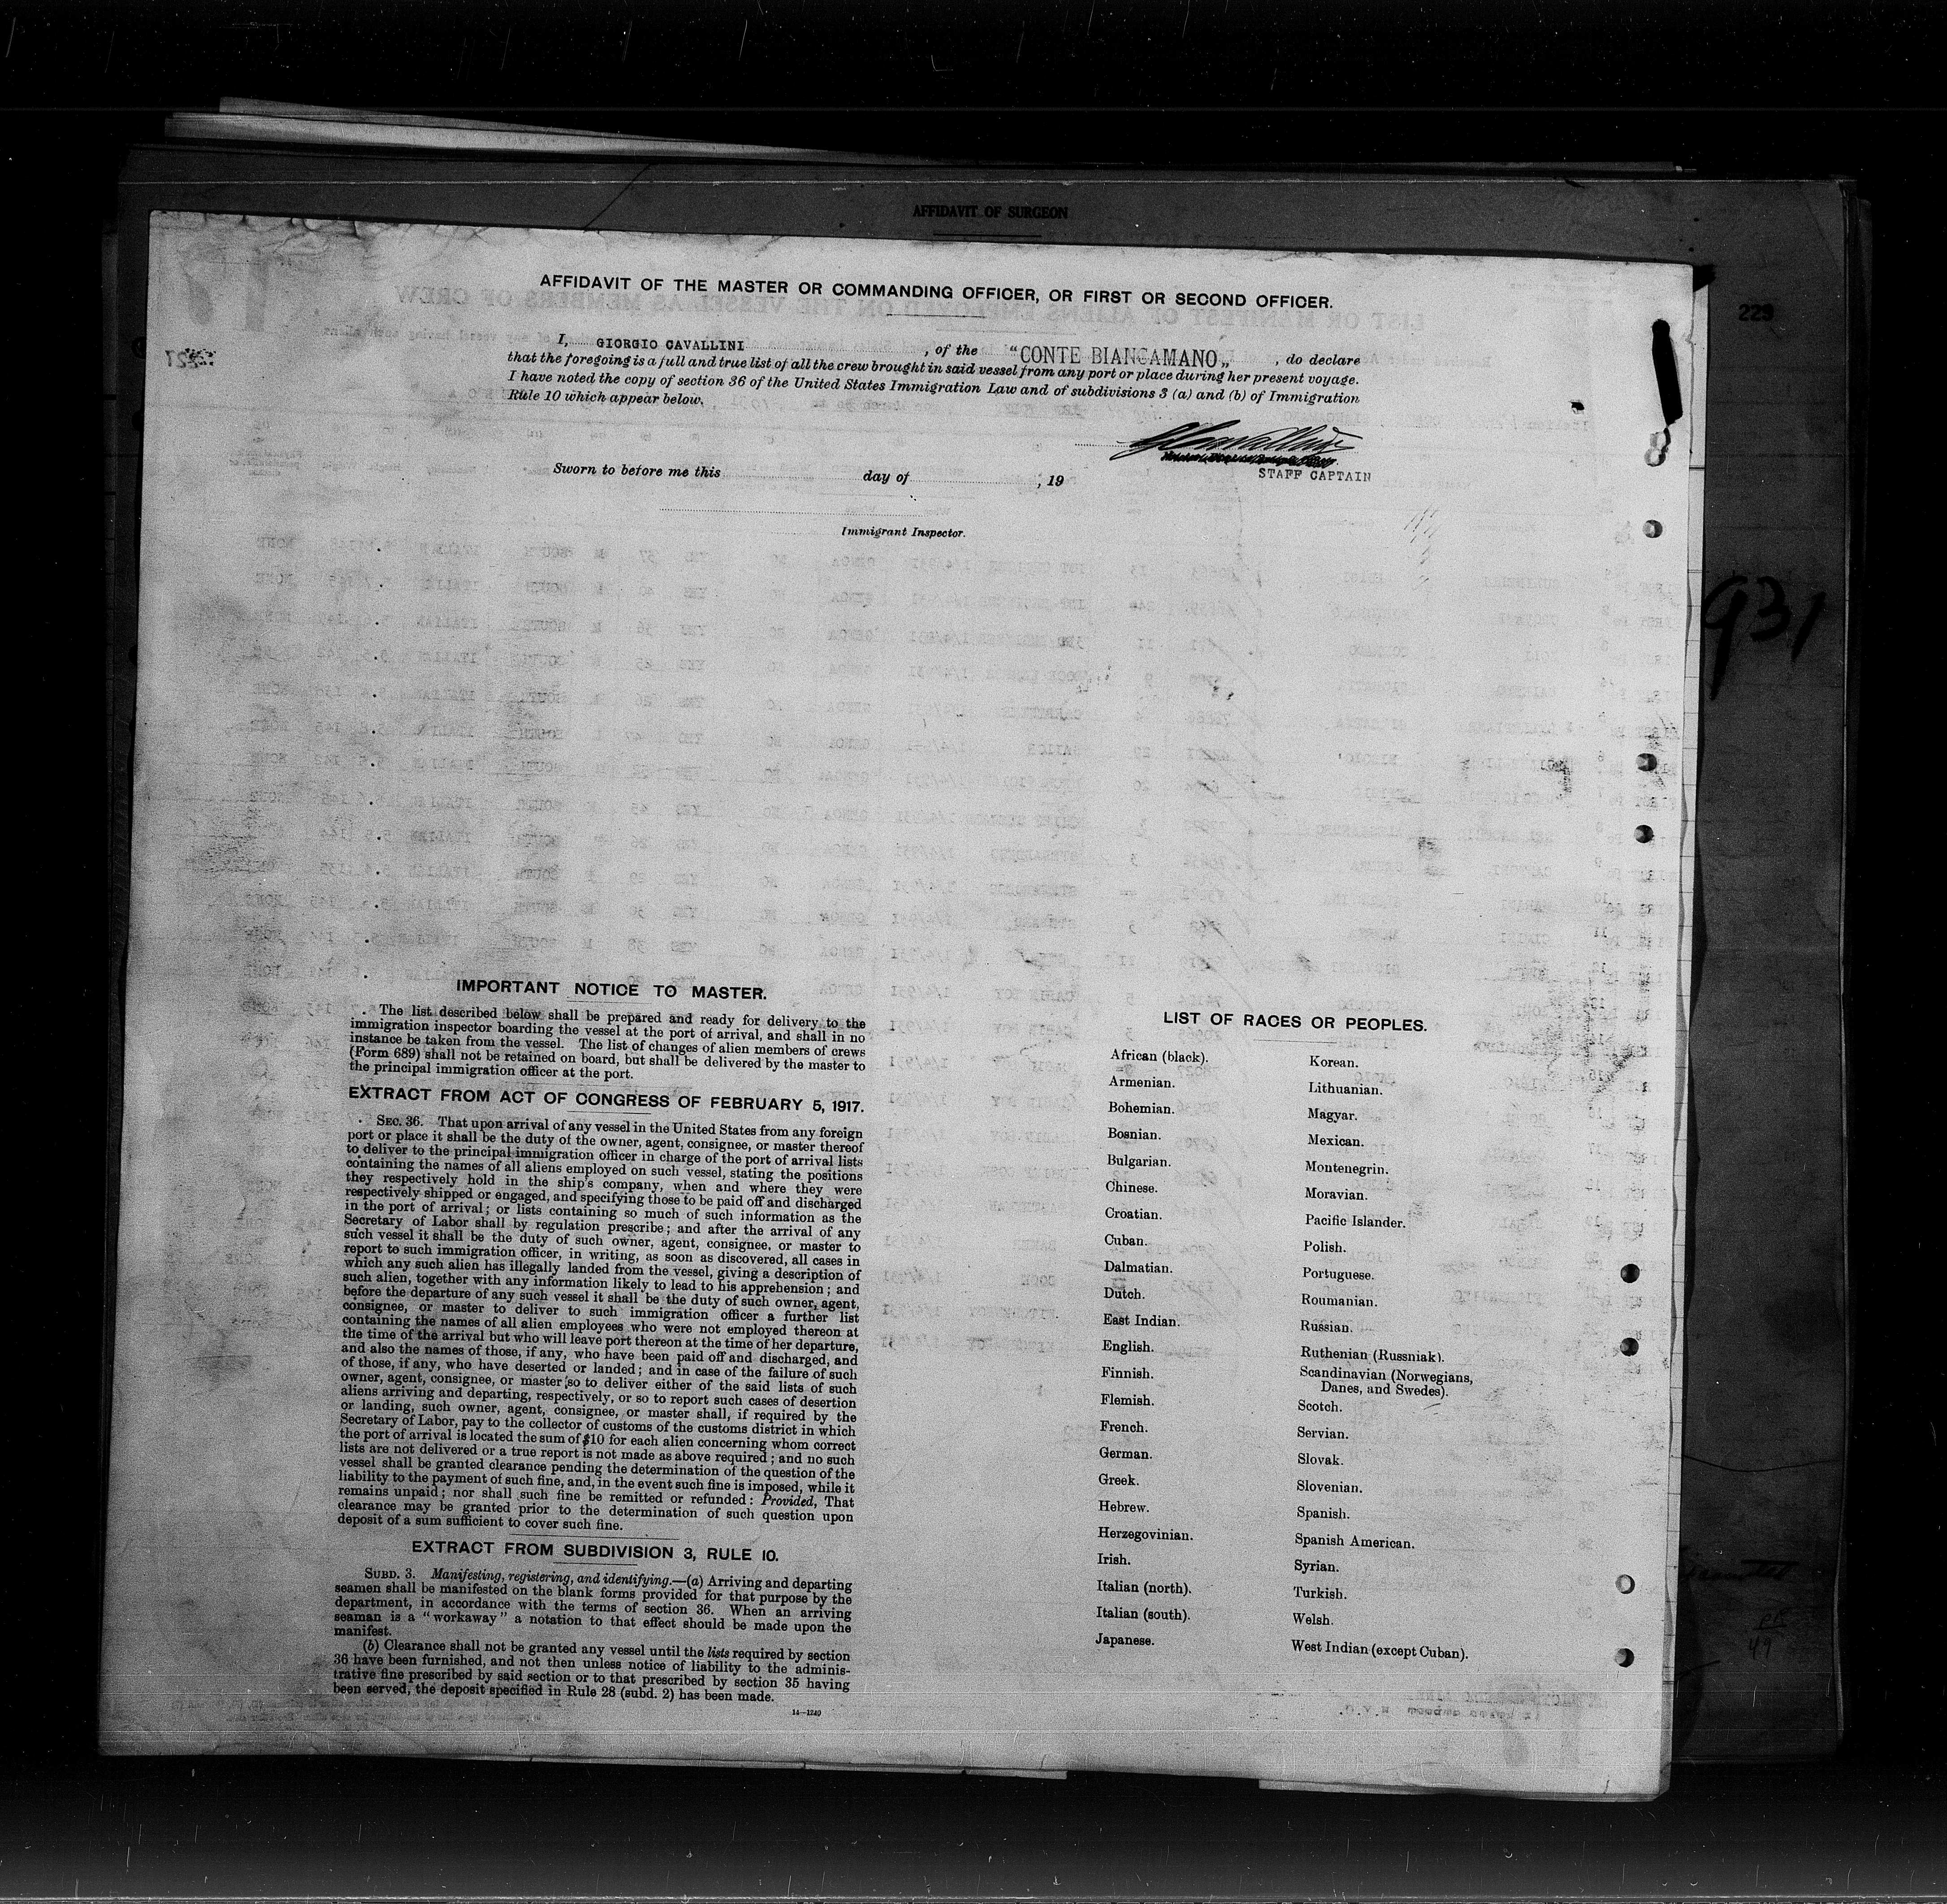 AFFIDAVIT OF SURGEON
AFFIDAVIT OF THE MASTER OR COMMANDING OFFICER, OR FIRST OR SECOND OFFICER.
I, GIORGIO CAVALLINI , of the "CONTE BIANCAMANO„ , do declare
that the foregoing is a full and true list of all the crew brought in said vessel from any port or place during her present voyage.
I have noted the copy of section 36 of the United States Immigration Law and of subdivisions 3 (a) and (b) of Immigration
Rule 10 which appear below.
STAFF CAPTAIN
Sworn to before me this day of , 19
Immigrant Inspector.
229
8
931
IMPORTANT NOTICE TO MASTER.
The list described below shall be prepared and ready for delivery to the
immigration inspector boarding the vessel at the port of arrival, and shall in no
instance be taken from the vessel. The list of changes of alien members of crews
(Form 689) shall not be retained on board, but shall be delivered by the master to
the principal immigration officer at the port.
EXTRACT FROM ACT OF CONGRESS OF FEBRUARY 5, 1917.
SEC. 36. That upon arrival of any vessel in the United States from any foreign
port or place it shall be the duty of the owner, agent, consignee, or master thereof
to deliver to the principal immigration officer in charge of the port of arrival lists
containing the names of all aliens employed on such vessel, stating the positions
they respectively hold in the ship's company, when and where they were
respectively shipped or engaged, and specifying those to be paid off and discharged
in the port of arrival; or lists containing so much of such information as the
Secretary of Labor shall by regulation prescribe; and after the arrival of any
such vessel it shall be the duty of such owner, agent, consignee, or master to
report to such immigration officer, in writing, as soon as discovered, all cases in
which any such alien has illegally landed from the vessel, giving a description of
such alien, together with any information likely to lead to his apprehension; and
before the departure of any such vessel it shall be the duty of such owner, agent,
consignee, or master to deliver to such immigration officer a further list
containing the names of all alien employees who were not employed thereon at
the time of the arrival but who will leave port thereon at the time of her departure,
and also the names of those, if any, who have been paid off and discharged, and
of those, if any, who have deserted or landed; and in case of the failure of such
owner, agent, consignee, or master so to deliver either of the said lists of such
aliens arriving and departing, respectively, or so to report such cases of desertion
or landing, such owner, agent, consignee, or master shall, if required by the
Secretary of Labor, pay to the collector of customs of the customs district in which
the port of arrival is located the sum of $10 for each alien concerning whom correct
lists are not delivered or a true report is not made as above required; and no such
vessel shall be granted clearance pending the determination of the question of the
liability to the payment of such fine, and, in the event such fine is imposed, while it
remains unpaid; nor shall such fine be remitted or refunded: Provided, That
clearance may be granted prior to the determination of such question upon
deposit of a sum sufficient to cover such fine.
EXTRACT FROM SUBDIVISION 3, RULE 10.
SUBD. 3. Manifesting, registering, and identifying.—(a) Arriving and departing
seamen shall be manifested on the blank forms provided for that purpose by the
department, in accordance with the terms of section 36. When an arriving
seaman is a "workaway" a notation to that effect should be made upon the
manifest.
(b) Clearance shall not be granted any vessel until the lists required by section
36 have been furnished, and not then unless notice of liability to the adminis-
trative fine prescribed by said section or to that prescribed by section 35 having
been served, the deposit specified in Rule 28 (subd. 2) has been made.
14—1240
LIST OF RACES OR PEOPLES.
African (black).
Armenian.
Bohemian.
Bosnian.
Bulgarian.
Chinese.
Croatian.
Cuban.
Dalmatian.
Dutch.
East Indian.
English.
Finnish.
Flemish.
French.
German.
Greek.
Hebrew.
Herzegovinian.
Irish.
Italian (north).
Italian (south).
Japanese.
Korean.
Lithuanian.
Magyar.
Mexican.
Montenegrin.
Moravian.
Pacific Islander.
Polish.
Portuguese.
Roumanian.
Russian.
Ruthenian (Russniak).
Scandinavian (Norwegians,
Danes, and Swedes).
Scotch.
Servian.
Slovak.
Slovenian.
Spanish.
Spanish American.
Syrian.
Turkish.
Welsh.
West Indian (except Cuban).
49